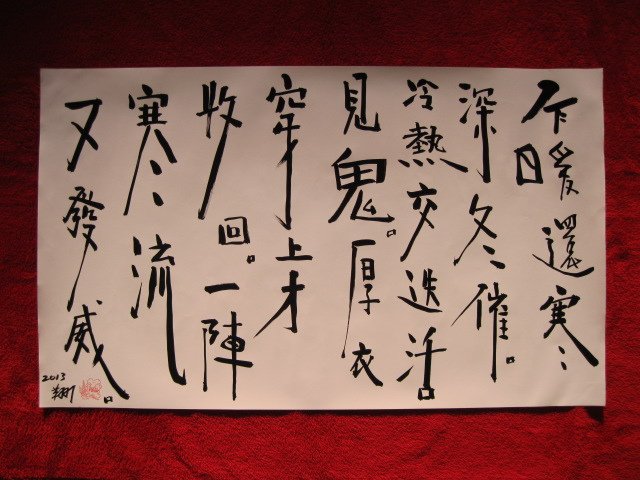 乍暖還寒
深冬催。
冷熱交迭活
見鬼。厚衣
穿上才
收回。一陣
寒流
又發威。
2013
翔